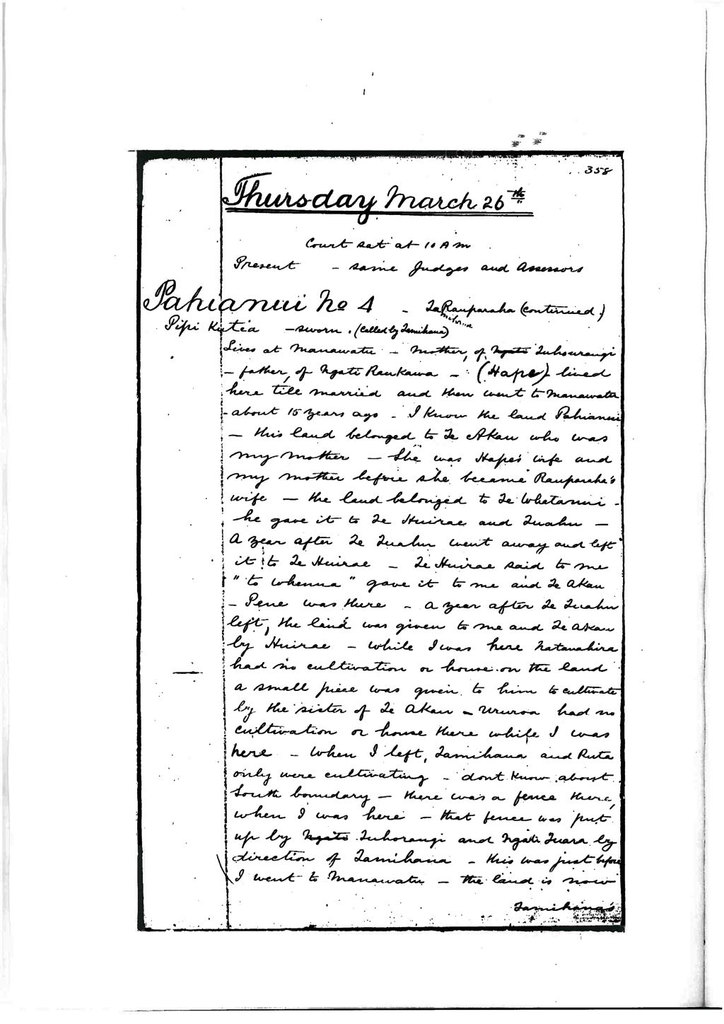 358
Thursday March 26th
Court sat at 10 A m
Present - same Judges and Assessors
Pahianui No 4 - Ta Rauparaha (continued)
Pipi Kutia - sworn. (Called by Tamihana)
Lives at Manawatu - Mother, of Ngato Tuhourangi
- father, of Ngati Raukawa - (Hape) lived
here till married and then went to Manawatu
- about 15 years ago - I know the land Pahianui
- this land belonged to Te Akau who was
my mother - She was Hape's wife and
my mother before she became Rauparaha's
wife - the land belonged to Te Whetanui -
he gave it to Te Huirae and Tuahu -
A year after Te Tuahu went away and left
it to Te Huirae - Te Huirae said to me
"to whenua" gave it to me and Te Akau
- Pene was there - a year after Te Tuahu
left, the land was given to me and Te Akau
by Huirae - while I was here Matenahira
had no cultivation or house on the land
a small piece was given to him to cultivate
by the sister of Te Akau - Ururoa had no
cultivation or house there while I was
here - When I left, Tamihana and Ruta
only were cultivating - dont know about
South boundary - there was a fence there,
when I was here - that fence was put
up by Ngato Tuhorangi and Ngati Tuara by
direction of Tamihana - this was just before
I went to Manawatu - the land is now
Tamihana's